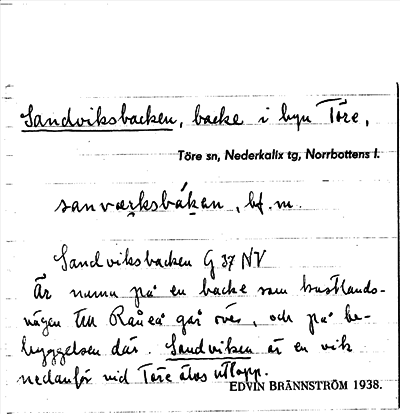 Sandviksbacken, backe i byn Töre,
Töre sn, Nederkalix tg, Norrbottens l.
sanværksbáken, bf. m.
Sandviksbacken G 37 NV
Är namn på en backe som kustlands-
vägen till Råneå går över, och på be-
byggelsen där. Sandviken är en vik
nedanför vid Töre älvs utlopp.
EDVIN BRÄNNSTRÖM 1938.